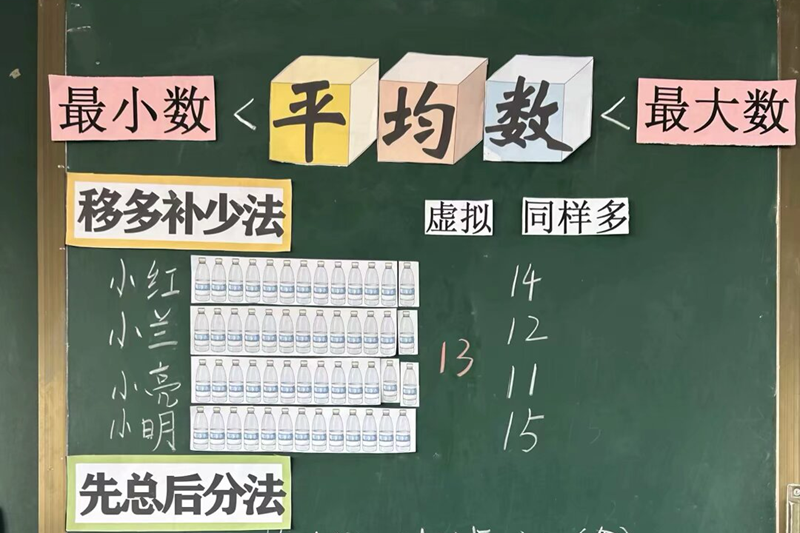 最小数 < 平均数 < 最大数
移多补少法 虚拟 同样多
小红 14
小兰 12
13
小亮 11
小明 15
先总后分法